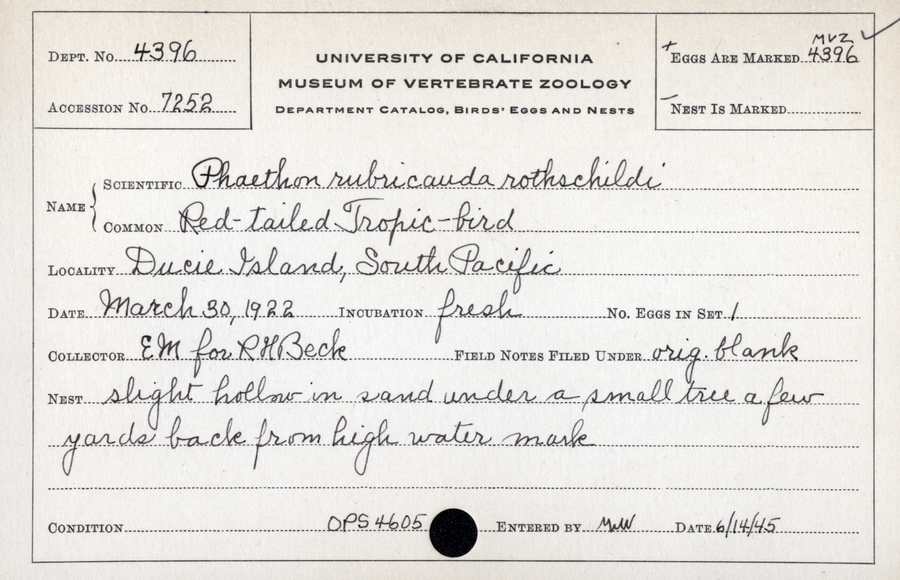 Dept. No. 4396
Accession No. 7252
UNIVERSITY OF CALIFORNIA
MUSEUM OF VERTEBRATE ZOOLOGY
Department Catalog, Birds' Eggs and Nests
MVZ ✓
+ Eggs Are Marked 4396
– Nest Is Marked
Name { Scientific Phaethon rubricauda rothschildi
Common Red-tailed Tropic-bird
Locality Ducie Island, South Pacific
Date March 30, 1922 Incubation fresh No. Eggs in Set 1
Collector EM for RHBeck Field Notes Filed Under orig. blank
Nest slight hollow in sand under a small tree a few
yards back from high water mark
Condition OPS 4605 Entered by MWW Date 6/14/45